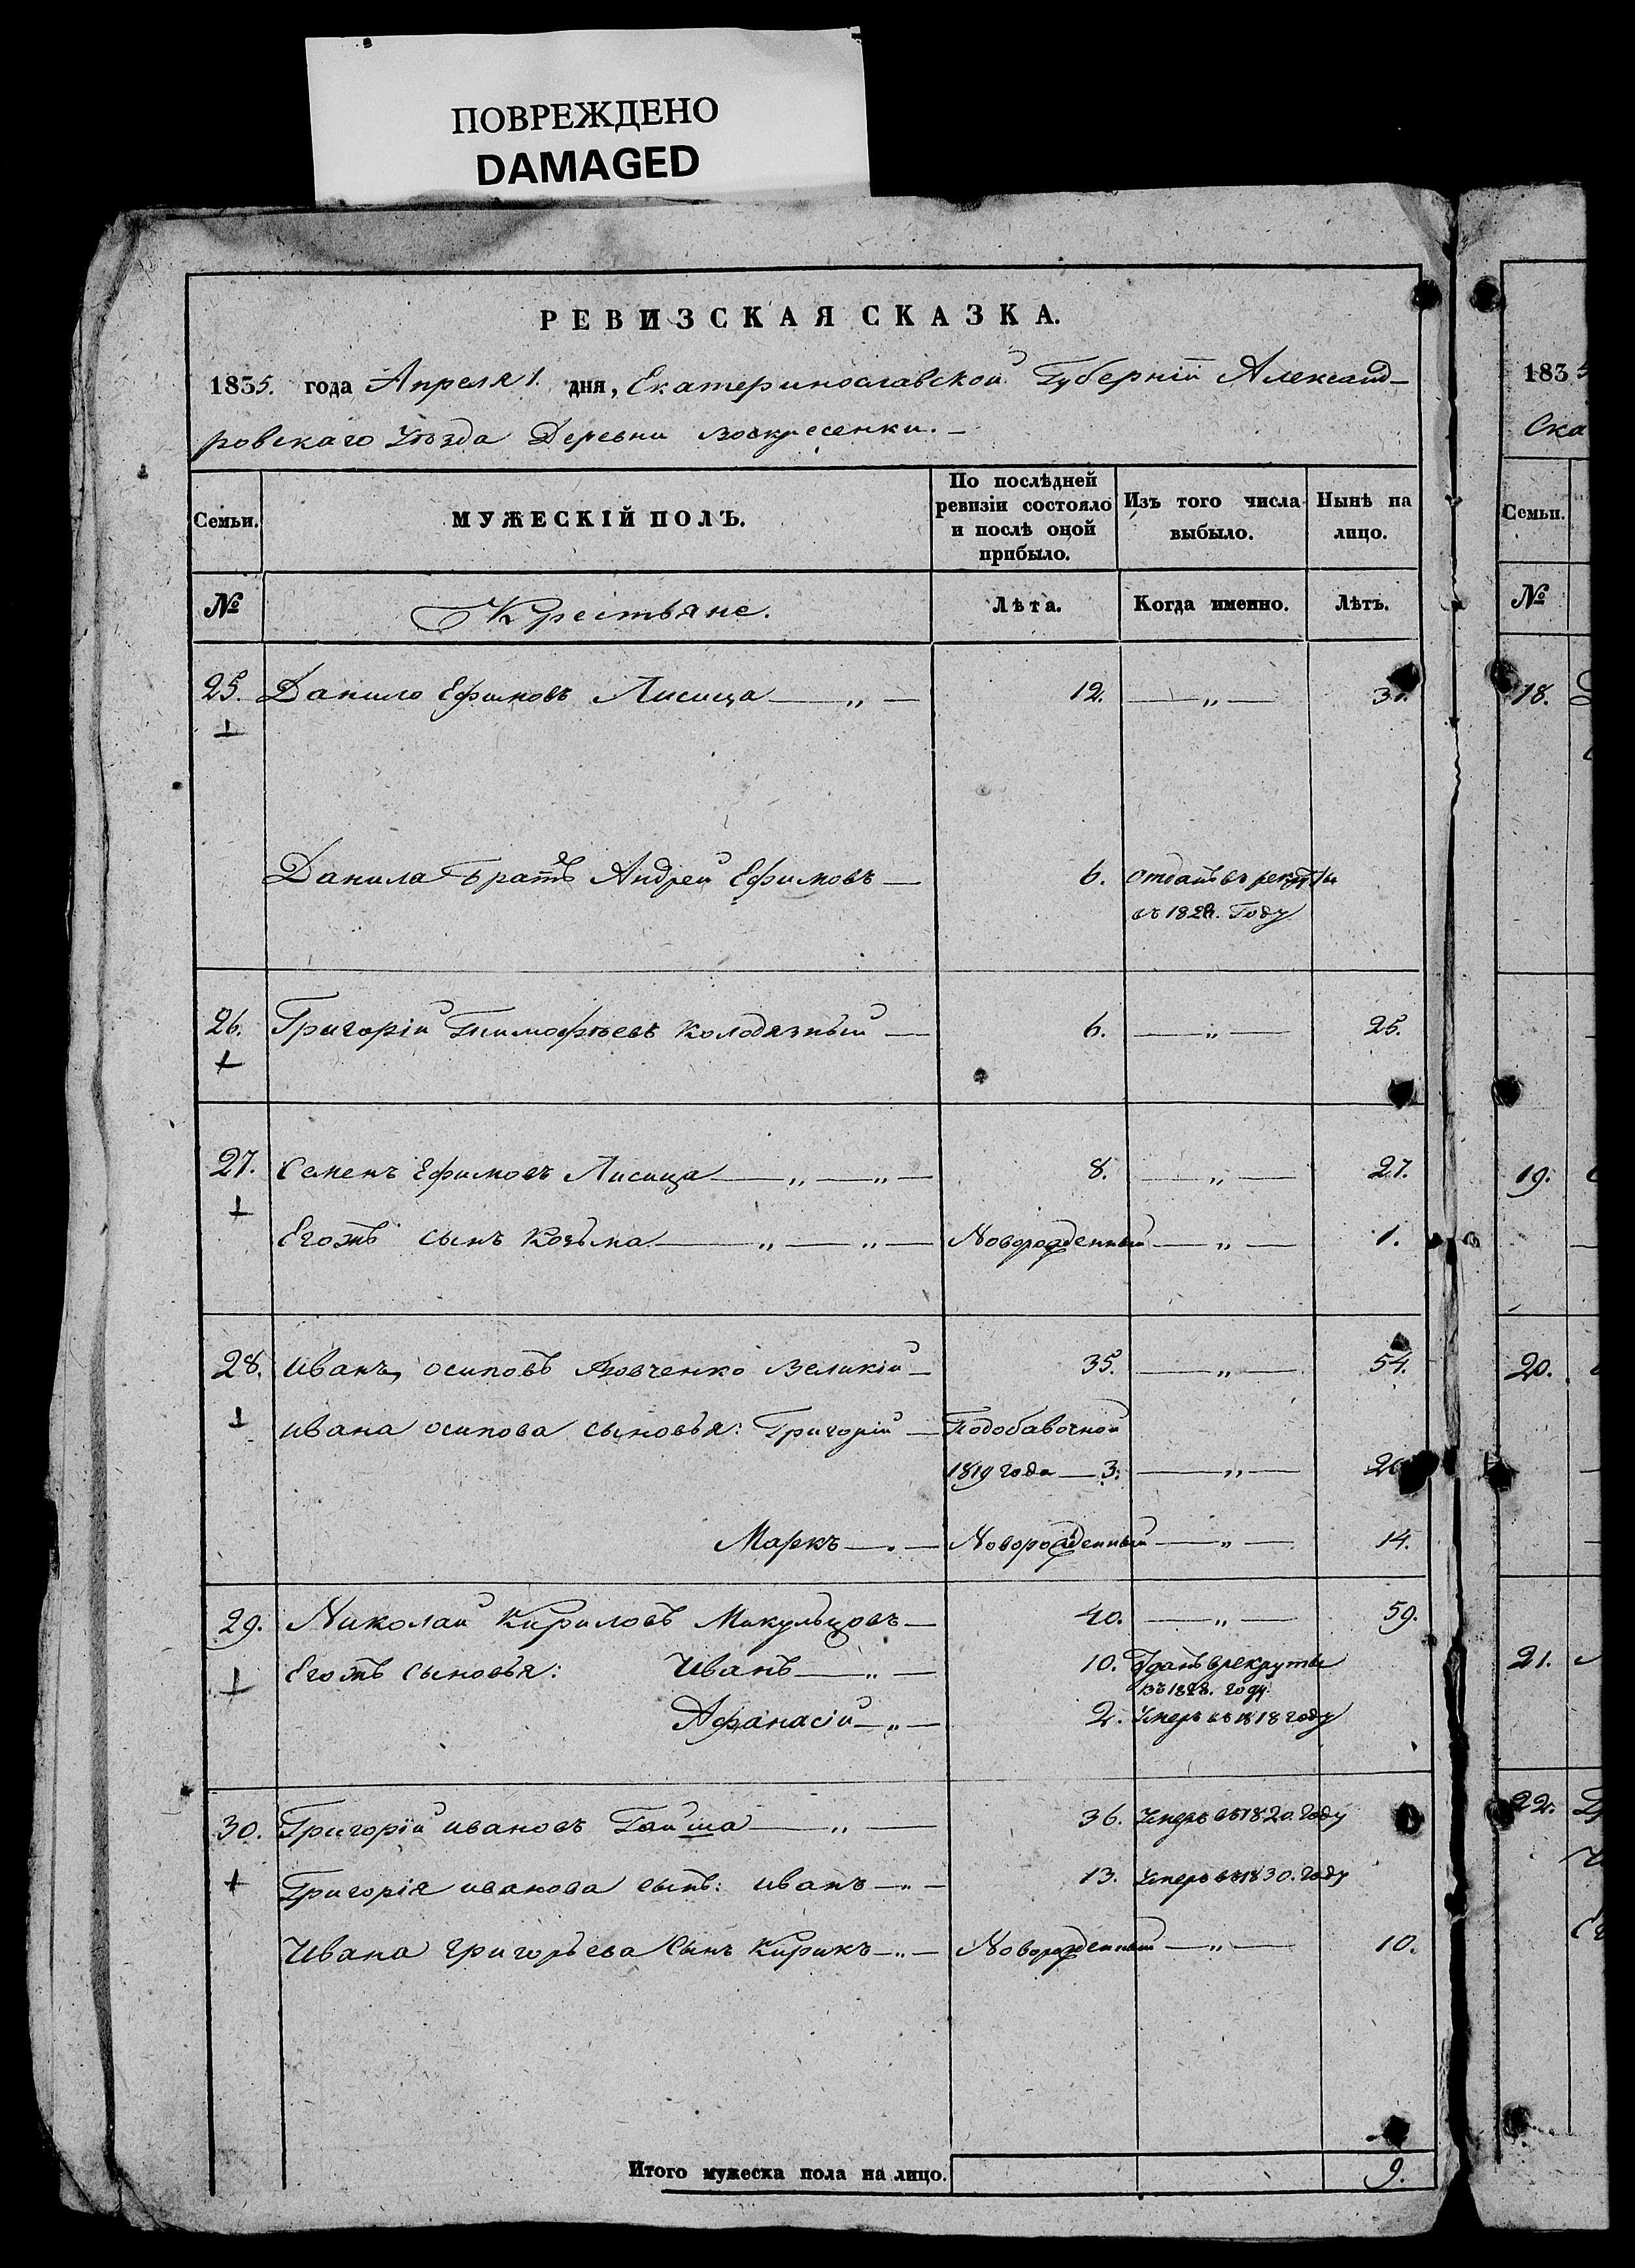 ПОВРЕЖДЕНО
DAMAGED
РЕВИЗСКАЯ СКАЗКА.
1835. года Апреля 1. дня, Екатеринославской Губерніи Александ-
ровскаго Уѣзда Деревни Воскресенки. -
Семьи. МУЖЕСКІЙ ПОЛЪ. По послѣдней ревизіи состояло и послѣ оной прибыло. Изъ того числа выбыло. Нынѣ на лицо.
№ Крестьяне. Лѣта. Когда именно. Лѣтъ.
25. Данило Ефимовъ Лисица — „ — 12. — „ — 31.
Данила братъ Андрей Ефимовъ — 6. отданъ въ рекруты
въ 182 . Году
26. Григорій Тимофѣевъ Колодязный — 6. — „ — 25.
27. Семенъ Ефимовъ Лисица — „ — „ — 8. — „ — 27.
Егожъ сынъ Козьма — „ — „ — Новорожденный — „ — 1.
28. Иванъ осиповъ Вовченко Великій — 35. — „ — 54.
Ивана осипова сыновья: Григорій — Подобавочной
1819 года — 3. — „ — 20
Маркъ — „ — Новорожденный — „ — 14.
29. Николай Кириловъ Микульцовъ — 40. — „ — 59.
Егожъ сыновья: Иванъ — „ — 10. Зданъ в рекруты
въ 182 . году
Афанасій — „ — 2. Умеръ въ 1818 году
30. Григорій ивановъ Гайша — „ — 36. Умеръ въ 1820. году
Григорія иванова сынъ: иванъ — „ — 13. Умеръ въ 1830. году
Ивана григорьева сынъ Кирикъ — „ — Новорожденный — „ — 10.
Итого мужеска пола на лицо. 9.
183
Ска
Семьи.
№
18.
19.
20.
21.
22.